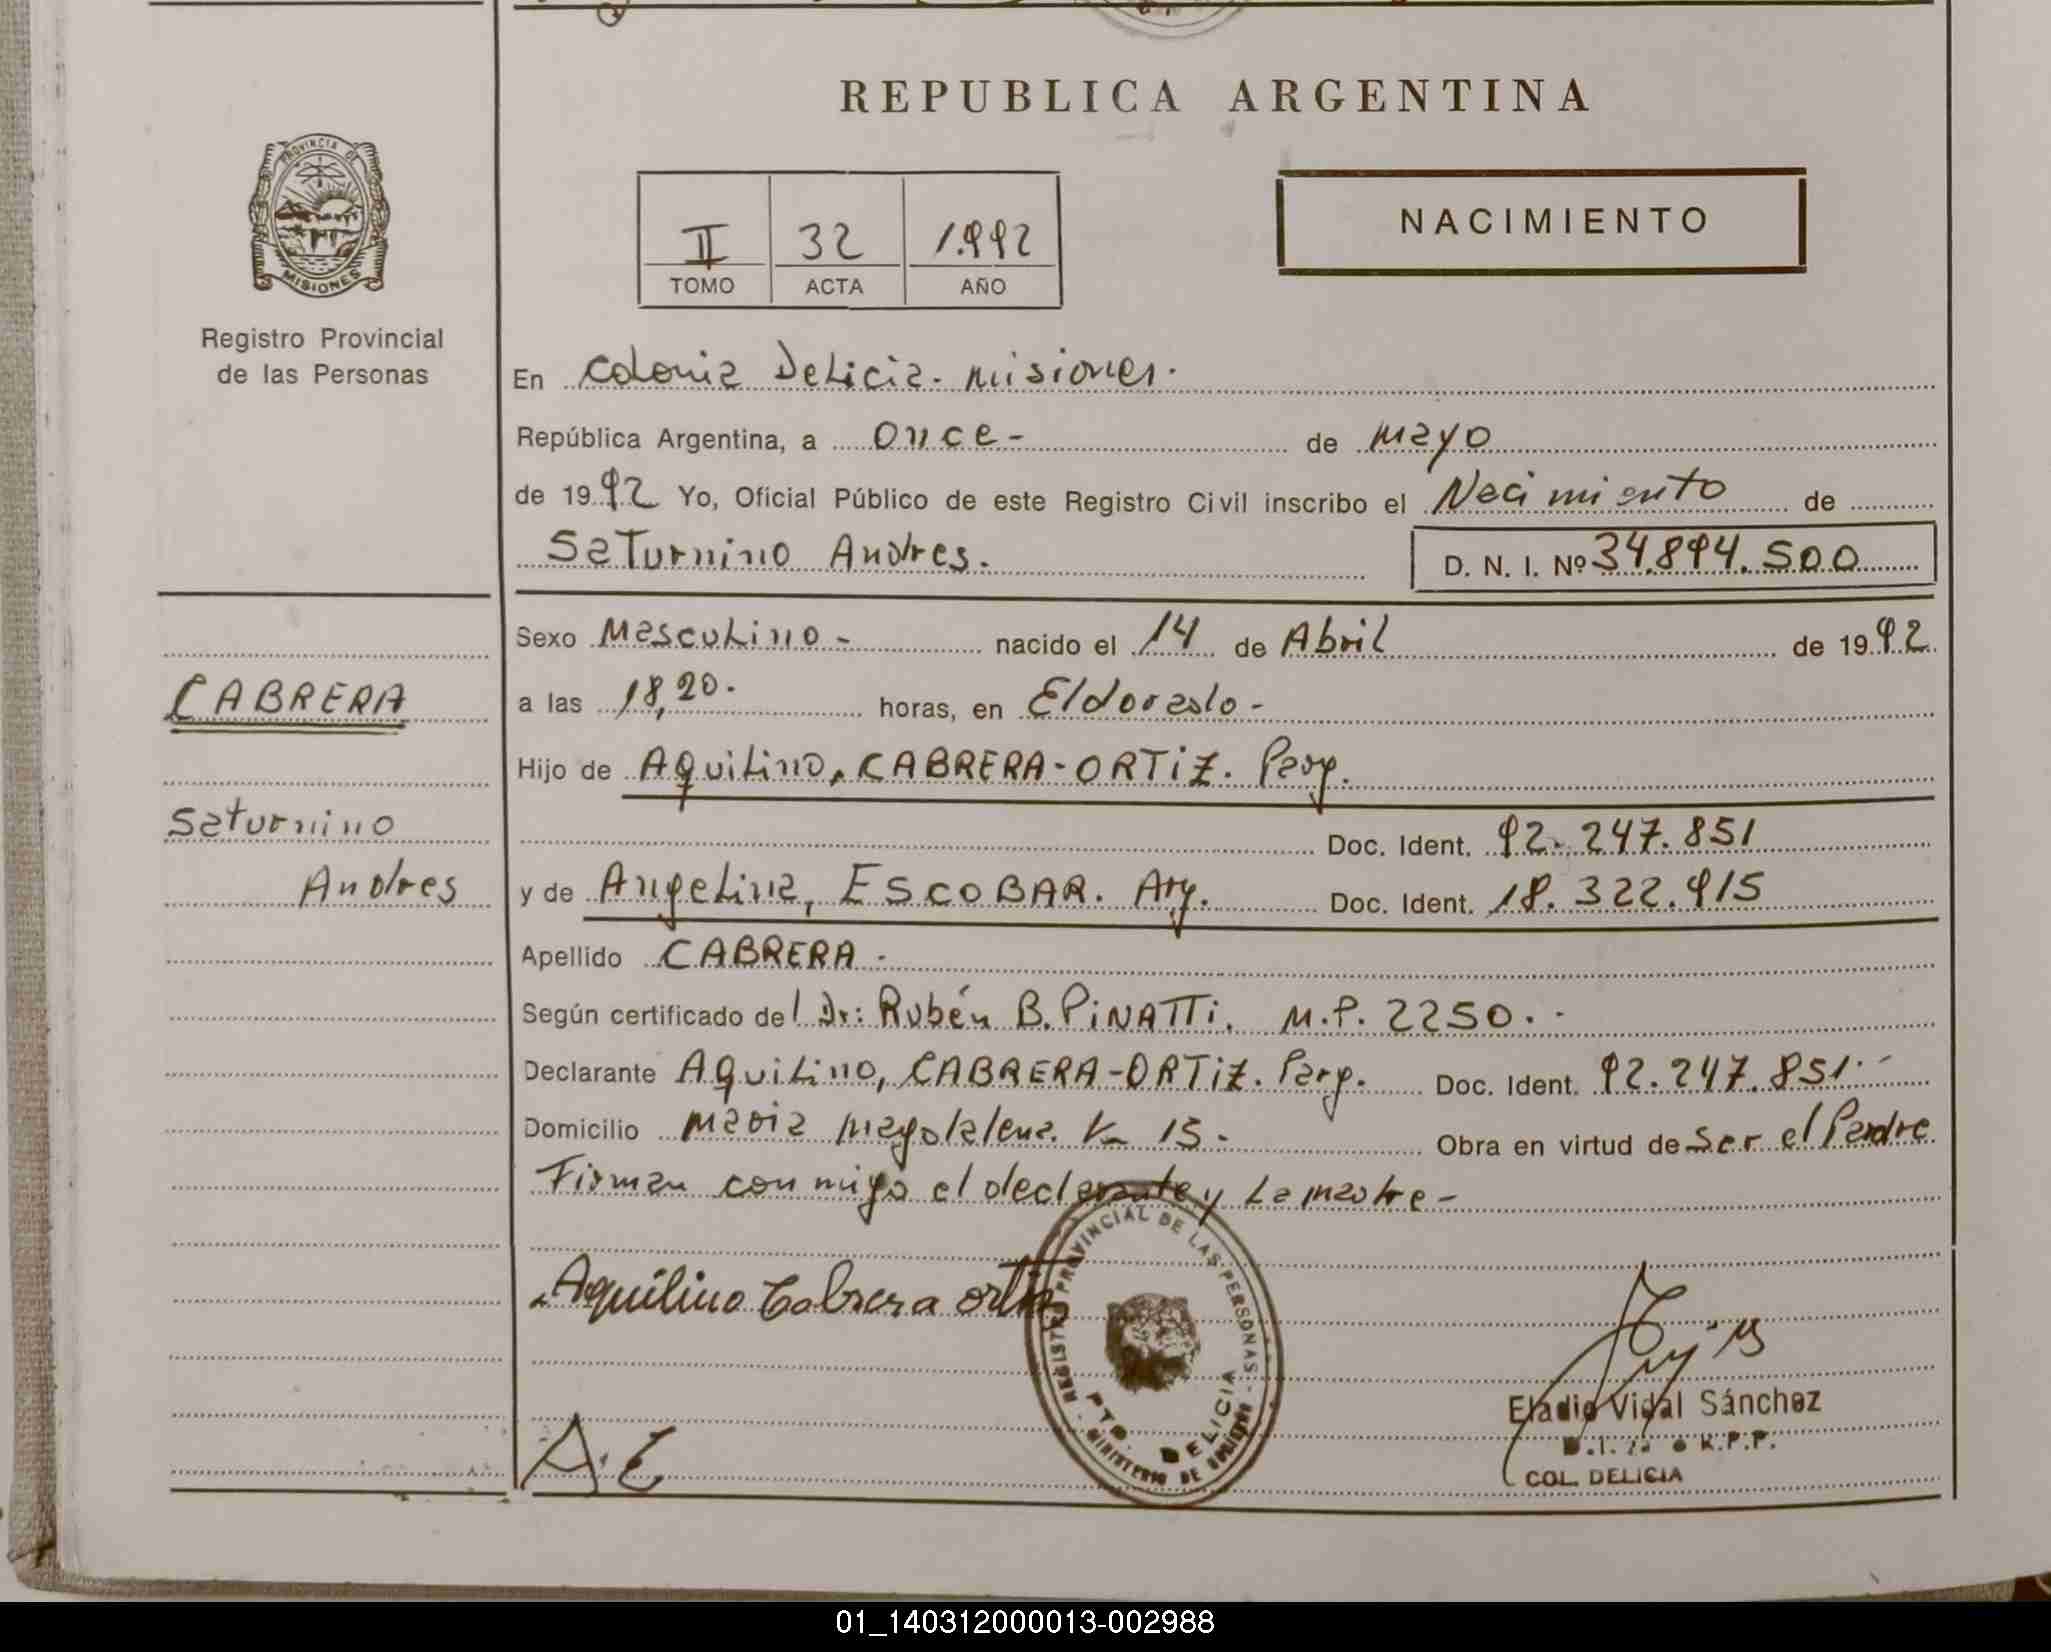 REPUBLICA ARGENTINA
PROVINCIA DE
MISIONES
Registro Provincial
de las Personas
II 32 1.992
TOMO ACTA AÑO
NACIMIENTO
En Colonia Delicia. misiones.
República Argentina, a once - de mayo
de 1992 Yo, Oficial Público de este Registro Civil inscribo el Nacimiento de
Saturnino Andres. D. N. I. Nº 34.894.500
CABRERA
Saturnino
Andres
Sexo Masculino - nacido el 14 de Abril de 1992.
a las 18,20. horas, en Eldorado -
Hijo de Aquilino, CABRERA-ORTIZ. Parg.
Doc. Ident. 92.247.851
y de Angelina, ESCOBAR. Arg. Doc. Ident. 18.322.915
Apellido CABRERA.
Según certificado del Dr: Rubén B. PINATTI. M.P. 2250.-
Declarante Aquilino, CABRERA-ORTIZ. Parg. Doc. Ident. 92.247.851.-
Domicilio maria magdalena. Km 15. Obra en virtud de Ser el Padre
Firman conmigo el declarante y La madre -
Aquilino Cabrera ortiz
REGISTRO PROVINCIAL DE LAS PERSONAS
PTO. DELICIA
MINISTERIO DE GOBIERNO
A.E
Eladio Vidal Sánchez
R.P.P.
COL. DELICIA
01_140312000013-002988